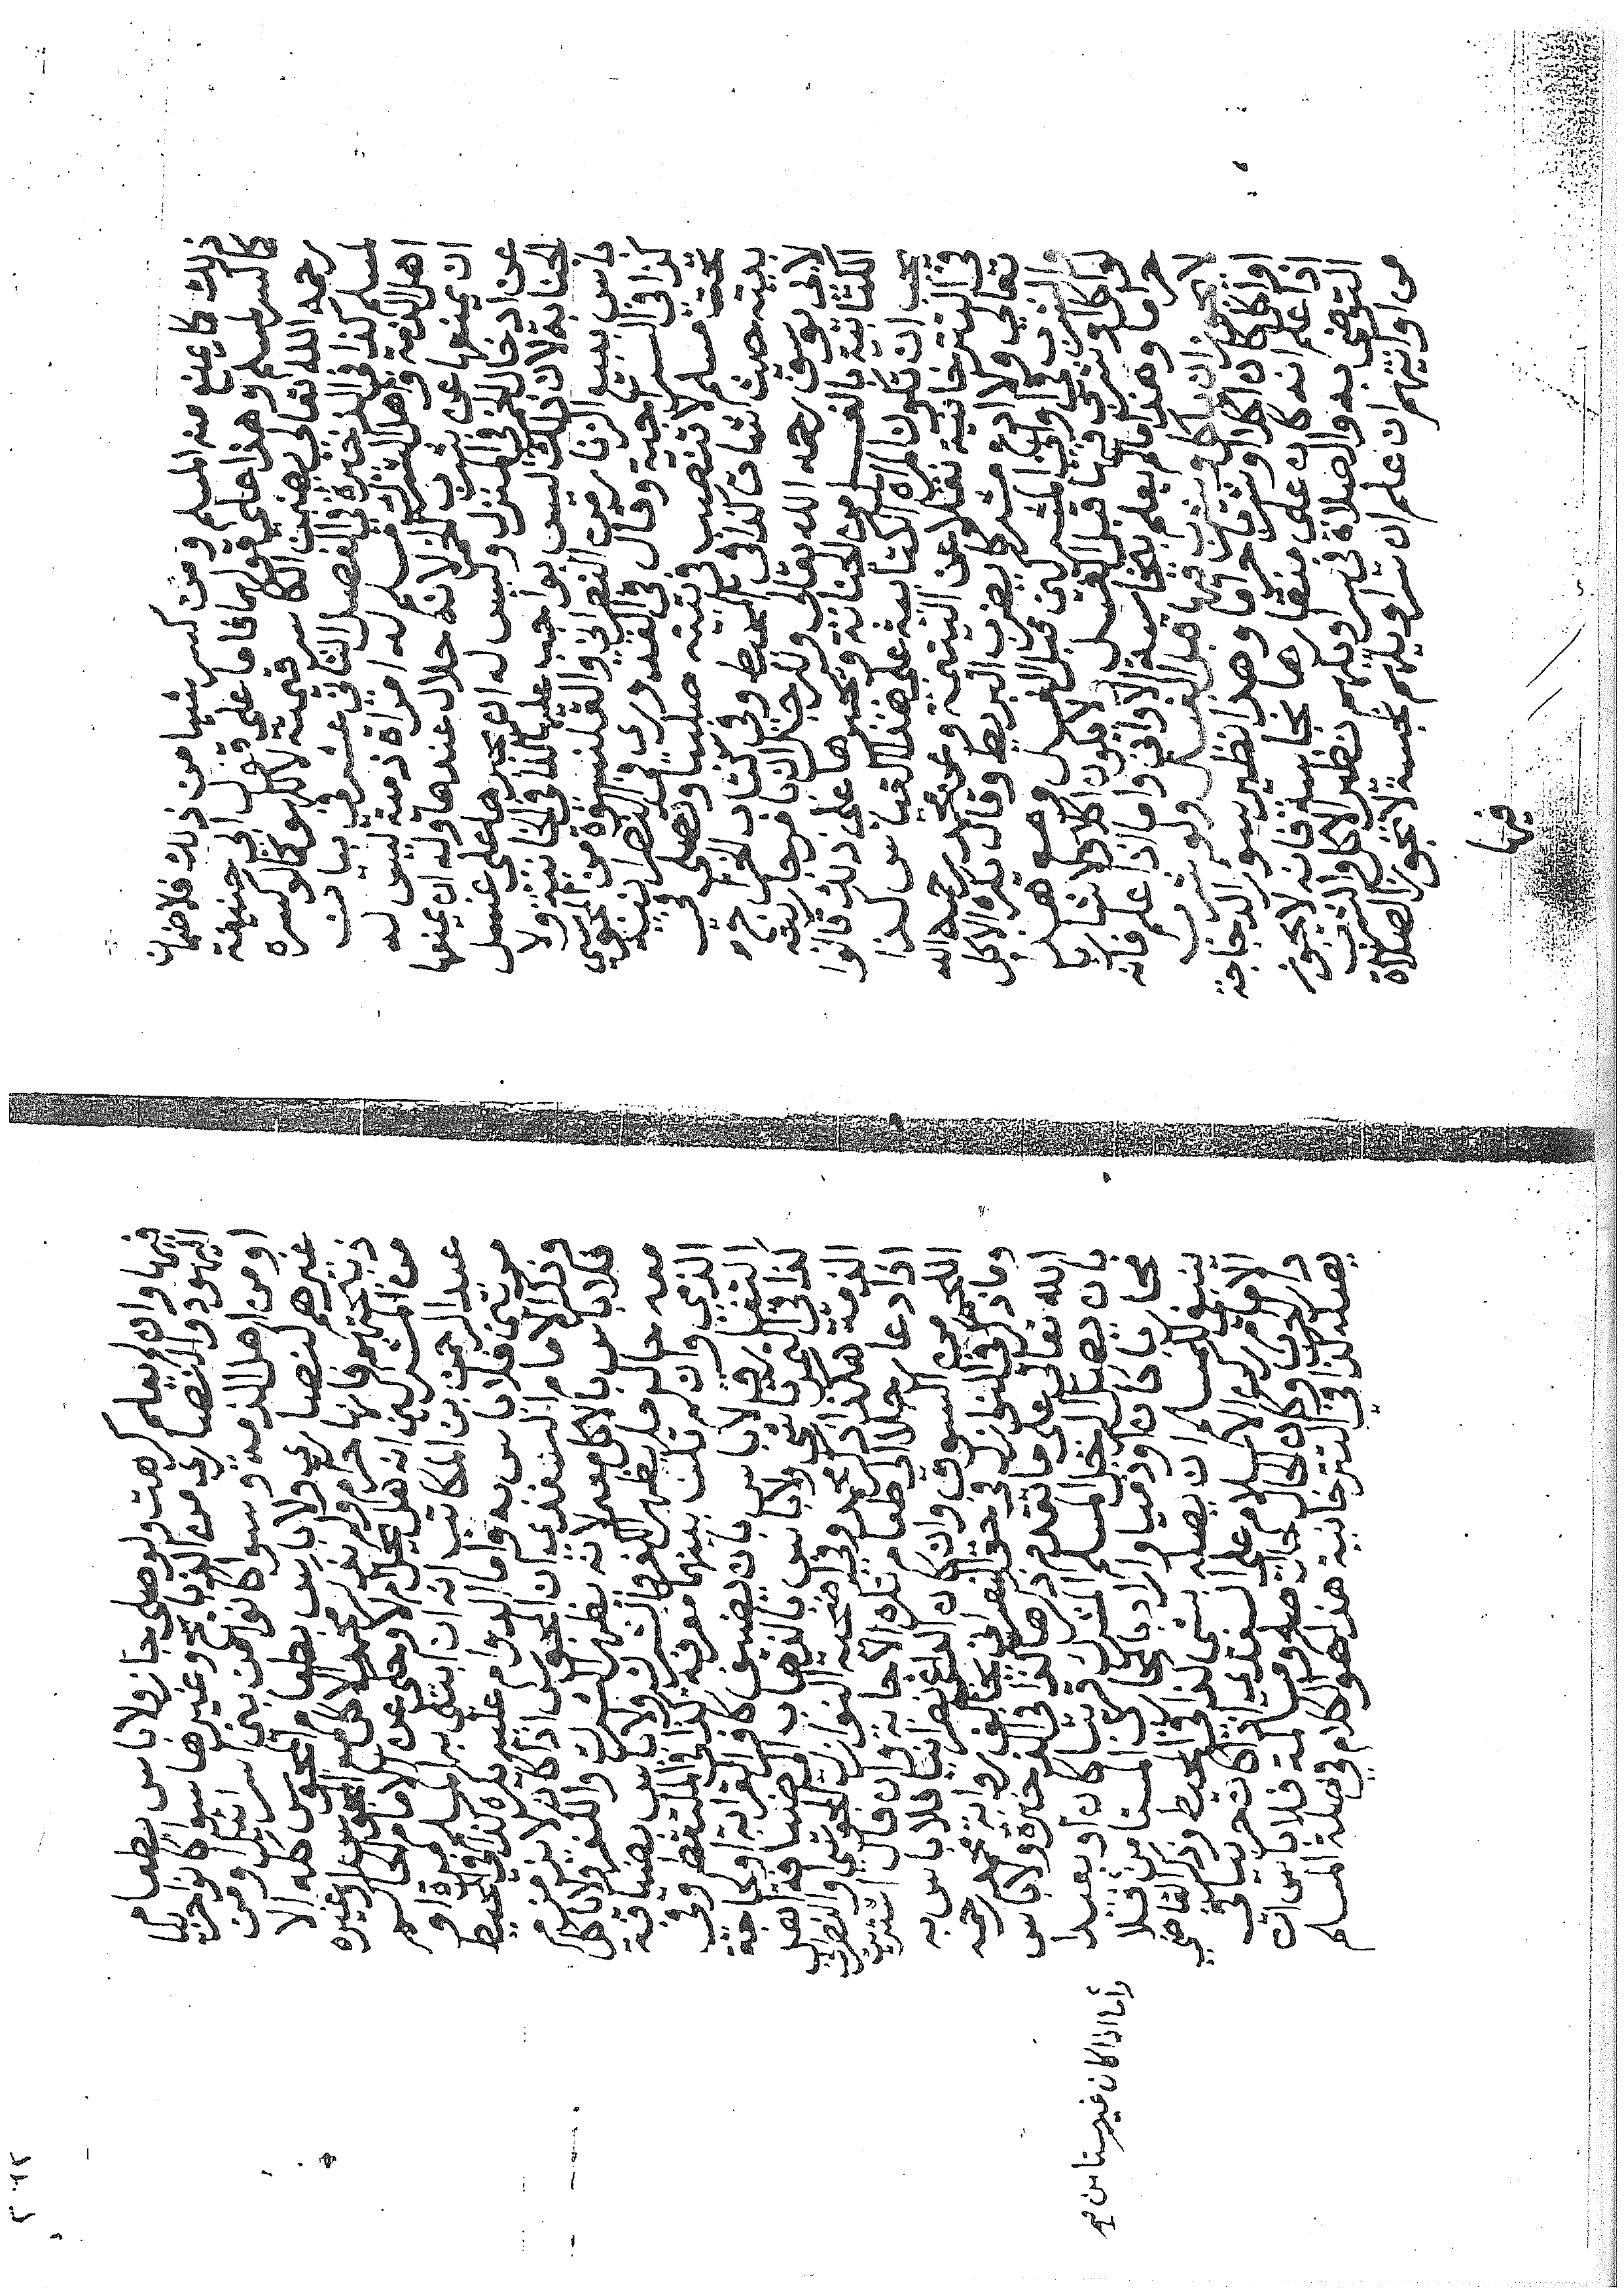 ذلك كما يمنع منه المسلم ومن كسر شيئا من ذلك فلا ضمان
كما لو كسر لمسلم وهذا على قولهما فاما على قول ابي حنيفة
رحمه الله تعالى يضمن الكاسر قيمته لا الكبير كما لو كسره
لمسلم كذا في الذخيرة في الفصل الثاني عشر في بيان
اهل الذمة واهل الشرك مسلم له امراة ذمية ليس له
ان يمنعها عن شرب الخمر لانه حلال عندها وله ان يمنعها
عن ادخال الخمر في المنزل وليس له ان يجبرها على غسل
الجنابة لان ذلك ليس بواجب عليها كذا في الخانية ولا
باس ببيع الزنار من النصراني والقلنسوة من المجوسي
كذا في السراجية وقال في القدوري في النصرانية
تحت مسلم لا تنصب في بيته صليبا وتصلي في
بيته حيث شات كذا في المحيط وفي كتاب الخراج
لابي يوسف رحمه الله تعالى وللرجل ان يامر جاريته
الكتابية بالغسل من الجنابة ويجبرها على ذلك قالوا
يجب ان تكون المراة الكتابية على هذا القياس كذا
في التترخانية نقلا عن اليتيمة وعن محمد رحمه الله
تعالى ولا ادع مشركا يضرب البربط وقال يكره الاكل
والشرب في اواني المشركين قبل الغسل ومع هذا
لو اكل وشرب فيها قبل الغسل لا يكون اكلا ولا شاربا
حراما وهذا ما لم يعلم بنجاسة الاواني واما اذا علم فانه
لا يجوز ان ياكل ويشرب فيها قبل الغسل ولو شرب
او اكل كان اكلا وشاربا حراما وهذا نظير سور الدجاجة
اذا علم انه كان على منقارها نجاسة فانه لا يجوز
التوضي به والصلاة في سراويلهم نظير الاكل والشرب
من اوانيهم ان علم ان سراويلهم نجسة لا تجوز الصلاة
فيها
فيها وان لم يعلم كرهت ولو صلى جاز ولا باس بطعام
اليهود والنصارى من الذبايح وغيرها سوا كانوا حربيا
او من اهل الذمة وسوا كانوا من بني اسرائيل او من
غيرهم كنصارى ولا باس بطعام المجوس كله الا
ذبيحتهم فانها حرام ولم يذكر محمد الاكل مع المجوس او غيره
من المشركين انه هل يحل ام لا وحكي عن الامام الحاكم
عبد الرحمن بن الكاتب انه ان ابتلي به المسلم مرة او
مرتين فلا باس به واما الدوام عليه يكره كذا في المحيط
وذكر الامام السغدي ان المجوس اذا كان لا يزمزم
فلا باس بالاكل معه لانه يظهر الشرك والكفر ولا ياكل
معه حال ما يظهر الكفر والشرك ولا باس بضيافة
الذي وان لم تكن بينهما معرفة كذا في الملتقط وفي
التفاريق لا باس بان يضيف كافرا لقرابة او لحاجة
كذا في التمرتاشي ولا باس بالذهاب الى ضيافة اهل
الذمة هكذا ذكر محمد وفي اضحية النوازل المجوسي والنصراني
اذا دعا رجلا الى طعام تكره الاجابة وان قال اشتريت
اللحم من السوق وان كان الداعي نصرانيا فلا باس به
وما ذكر في النوازل في حق النصراني يخالف رواية محمد رحمه
الله تعالى على ما تقدم ذكرها كذا في الذخيرة ولا باس
بان يصل الرجل المسلم المشرك قريبا كان او بعيدا
محاربا كان او ذميا واراد بالمحارب المستامن فلا
ينبغي للمسلم ان يصله بشي كذا في المحيط وذكر القاضي
الامام ركن الاسلام علي السغدي اذا كان حربيا في
دار الحرب وكان الحال حال صلح ومسالمة فلا باس ان
يصله كذا في التترخانية هذا هو الكلام في صلة المسلم
واما اذا كان غير مستامن صح